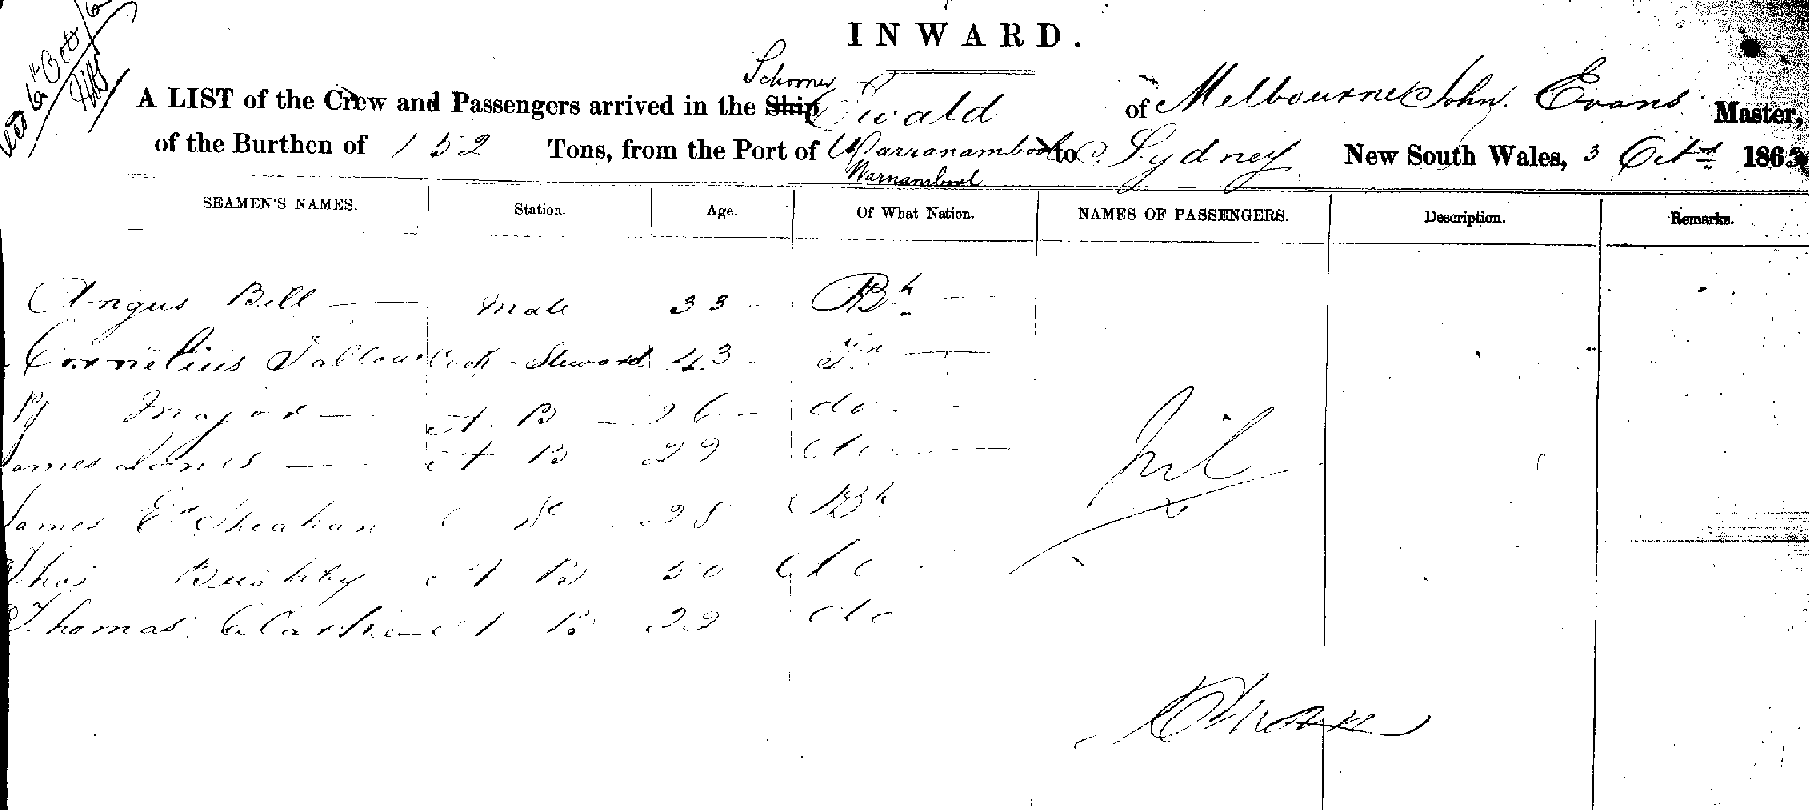 INWARD.
Schooner
A LIST of the Crew and Passengers arrived in the Ship Ewald of Melbourne John Evans Master,
of the Burthen of 152 Tons, from the Port of Warranambool to Sydney New South Wales, 3 Octr 1865
Warnambool
SEAMEN'S NAMES. Station. Age. Of What Nation. NAMES OF PASSENGERS. Description. Remarks.
Angus Bell Mate 33 Bh
Cornelius Cook Steward 43
Major A B 26 do
James Jones A B 29 do
James 25 Bh
Thos Bushby A B 50 do
Thomas A B 22 do
Nil